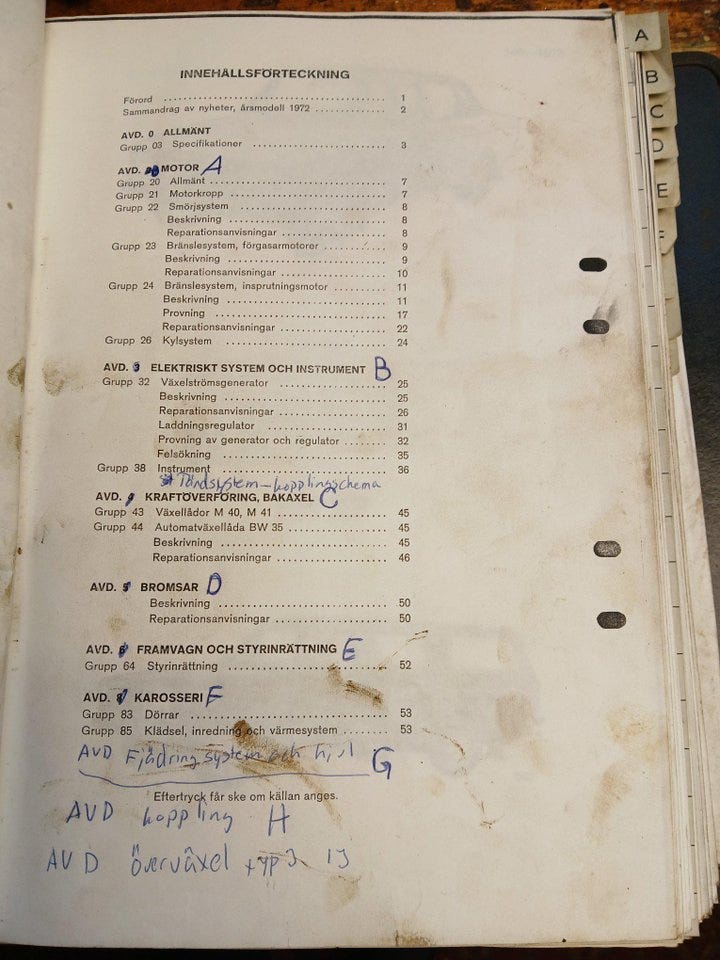 INNEHÅLLSFÖRTECKNING
Förord ........ 1
Sammandrag av nyheter, årsmodell 1972 ........ 2
AVD. 0 ALLMÄNT
Grupp 03 Specifikationer ........ 3
AVD. MOTOR A
Grupp 20 Allmänt ........ 7
Grupp 21 Motorkropp ........ 7
Grupp 22 Smörjsystem ........ 8
Beskrivning ........ 8
Reparationsanvisningar ........ 8
Grupp 23 Bränslesystem, förgasarmotorer ........ 9
Beskrivning ........ 9
Reparationsanvisningar ........ 10
Grupp 24 Bränslesystem, insprutningsmotor ........ 11
Beskrivning ........ 11
Provning ........ 17
Reparationsanvisningar ........ 22
Grupp 26 Kylsystem ........ 24
AVD. 3 ELEKTRISKT SYSTEM OCH INSTRUMENT B
Grupp 32 Växelströmsgenerator ........ 25
Beskrivning ........ 25
Reparationsanvisningar ........ 26
Laddningsregulator ........ 31
Provning av generator och regulator ........ 32
Felsökning ........ 35
Grupp 38 Instrument ........ 36
Tändsystem - kopplingschema
AVD. KRAFTÖVERFÖRING, BAKAXEL C
Grupp 43 Växellådor M 40, M 41 ........ 45
Grupp 44 Automatväxellåda BW 35 ........ 45
Beskrivning ........ 45
Reparationsanvisningar ........ 46
AVD. 5 BROMSAR D
Beskrivning ........ 50
Reparationsanvisningar ........ 50
AVD. 6 FRAMVAGN OCH STYRINRÄTTNING E
Grupp 64 Styrinrättning ........ 52
AVD. 8 KAROSSERI F
Grupp 83 Dörrar ........ 53
Grupp 85 Klädsel, inredning och värmesystem ........ 53
AVD Fjädringsystem och hjul G
Eftertryck får ske om källan anges.
AVD koppling H
AVD överväxel typ J
A
B
C
D
E
F